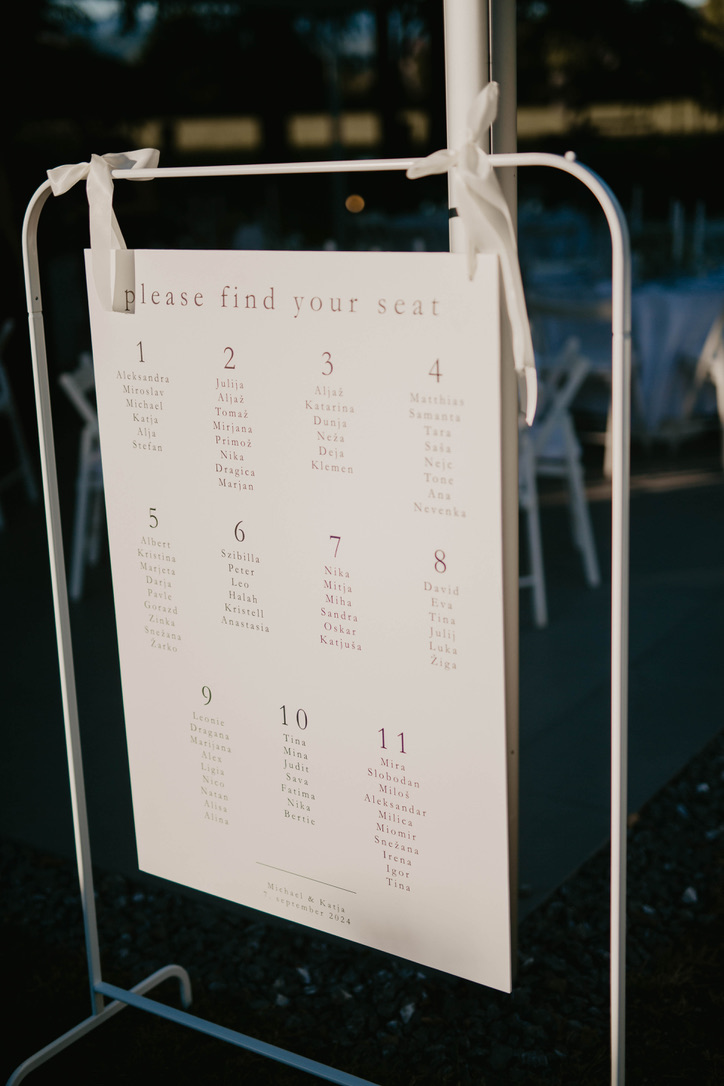 please find your seat
1
Aleksandra
Miroslav
Michael
Katja
Alja
Stefan
2
Julija
Aljaž
Tomaž
Mirjana
Primož
Nika
Dragica
Marjan
3
Aljaž
Katarina
Dunja
Neža
Deja
Klemen
4
Matthias
Samanta
Tara
Saša
Nejc
Tone
Ana
Nevenka
5
Albert
Kristina
Marjeta
Darja
Pavle
Gorazd
Zinka
Snežana
Žarko
6
Szibilla
Peter
Leo
Halah
Kristell
Anastasia
7
Nika
Mitja
Miha
Sandra
Oskar
Katjuša
8
David
Eva
Tina
Julij
Luka
Žiga
9
Leonie
Dragana
Marijana
Alex
Ligia
Nico
Natan
Alisa
Alina
10
Tina
Mina
Judit
Sava
Fatima
Nika
Bertie
11
Mira
Slobodan
Miloš
Aleksandar
Milica
Miomir
Snežana
Irena
Igor
Tina
Michael & Katja
7. september 2024